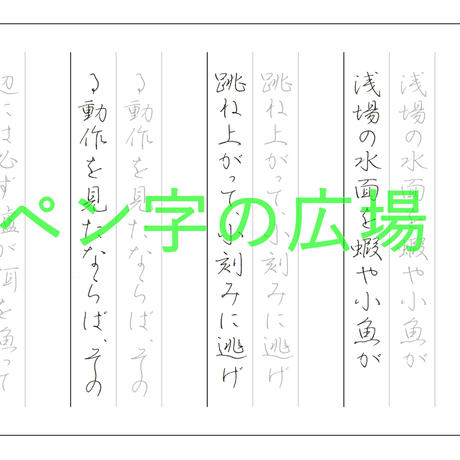 浅場の水面を蝦や小魚が
浅場の水面を蝦や小魚が
跳ね上がって、小刻みに逃げ
跳ね上がって、小刻みに逃げ
る動作を見たならば、その
る動作を見たならば、その
辺には必ず
ペン字の広場